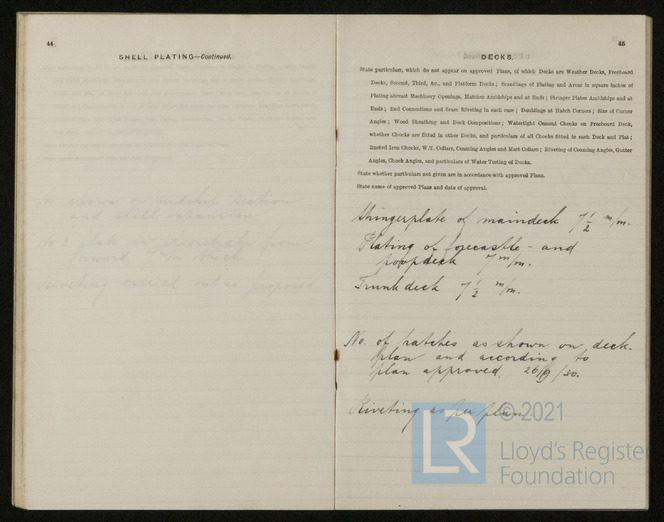 44
SHELL PLATING—Continued.
As shown on midship section
and shell expansion
forward 7 m/m thick
Riveting carried out as proposed
45
DECKS.
State particulars, which do not appear on approved Plans, of which Decks are Weather Decks, Freeboard
Decks, Second, Third, &c., and Platform Decks; Scantlings of Plating and Areas in square inches of
Plating abreast Machinery Openings, Hatches Amidships and at Ends; Stringer Plates Amidships and at
Ends; End Connections and Seam Riveting in each case; Doublings at Hatch Corners; Size of Corner
Angles; Wood Sheathing and Deck Compositions; Watertight Cement Chocks on Freeboard Deck,
whether Chocks are fitted in other Decks, and particulars of all Chocks fitted in each Deck and Flat;
Rusted Iron Chocks, W.T. Collars, Coaming Angles and Mast Collars; Riveting of Coaming Angles, Gutter
Angles, Chock Angles, and particulars of Water Testing of Decks.
State whether particulars not given are in accordance with approved Plans.
State name of approved Plans and date of approval.
Stringerplate of maindeck 7 1/2 m/m.
Plating of forecastle - and
poopdeck 7 m/m.
Trunkdeck 7 1/2 m/m.
No. of hatches as shown on deck-
plan and according to
plan approved.
Riveting as per plan
LR
© 2021
Lloyd's Register
Foundation